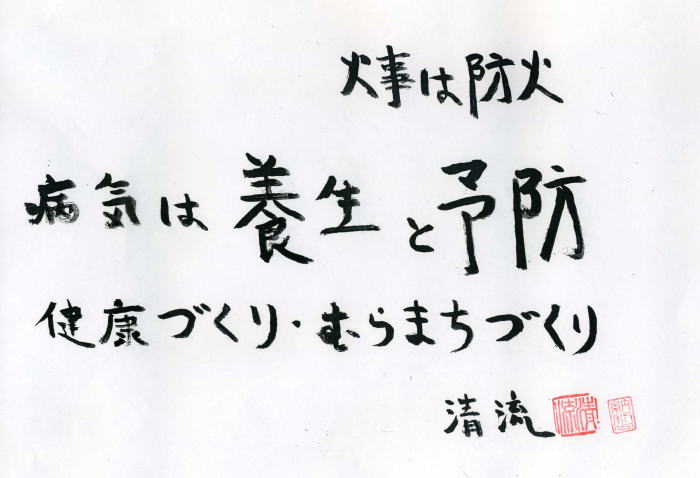 火事は防火
病気は養生と予防
健康づくり・むらまちづくり
清流
清流